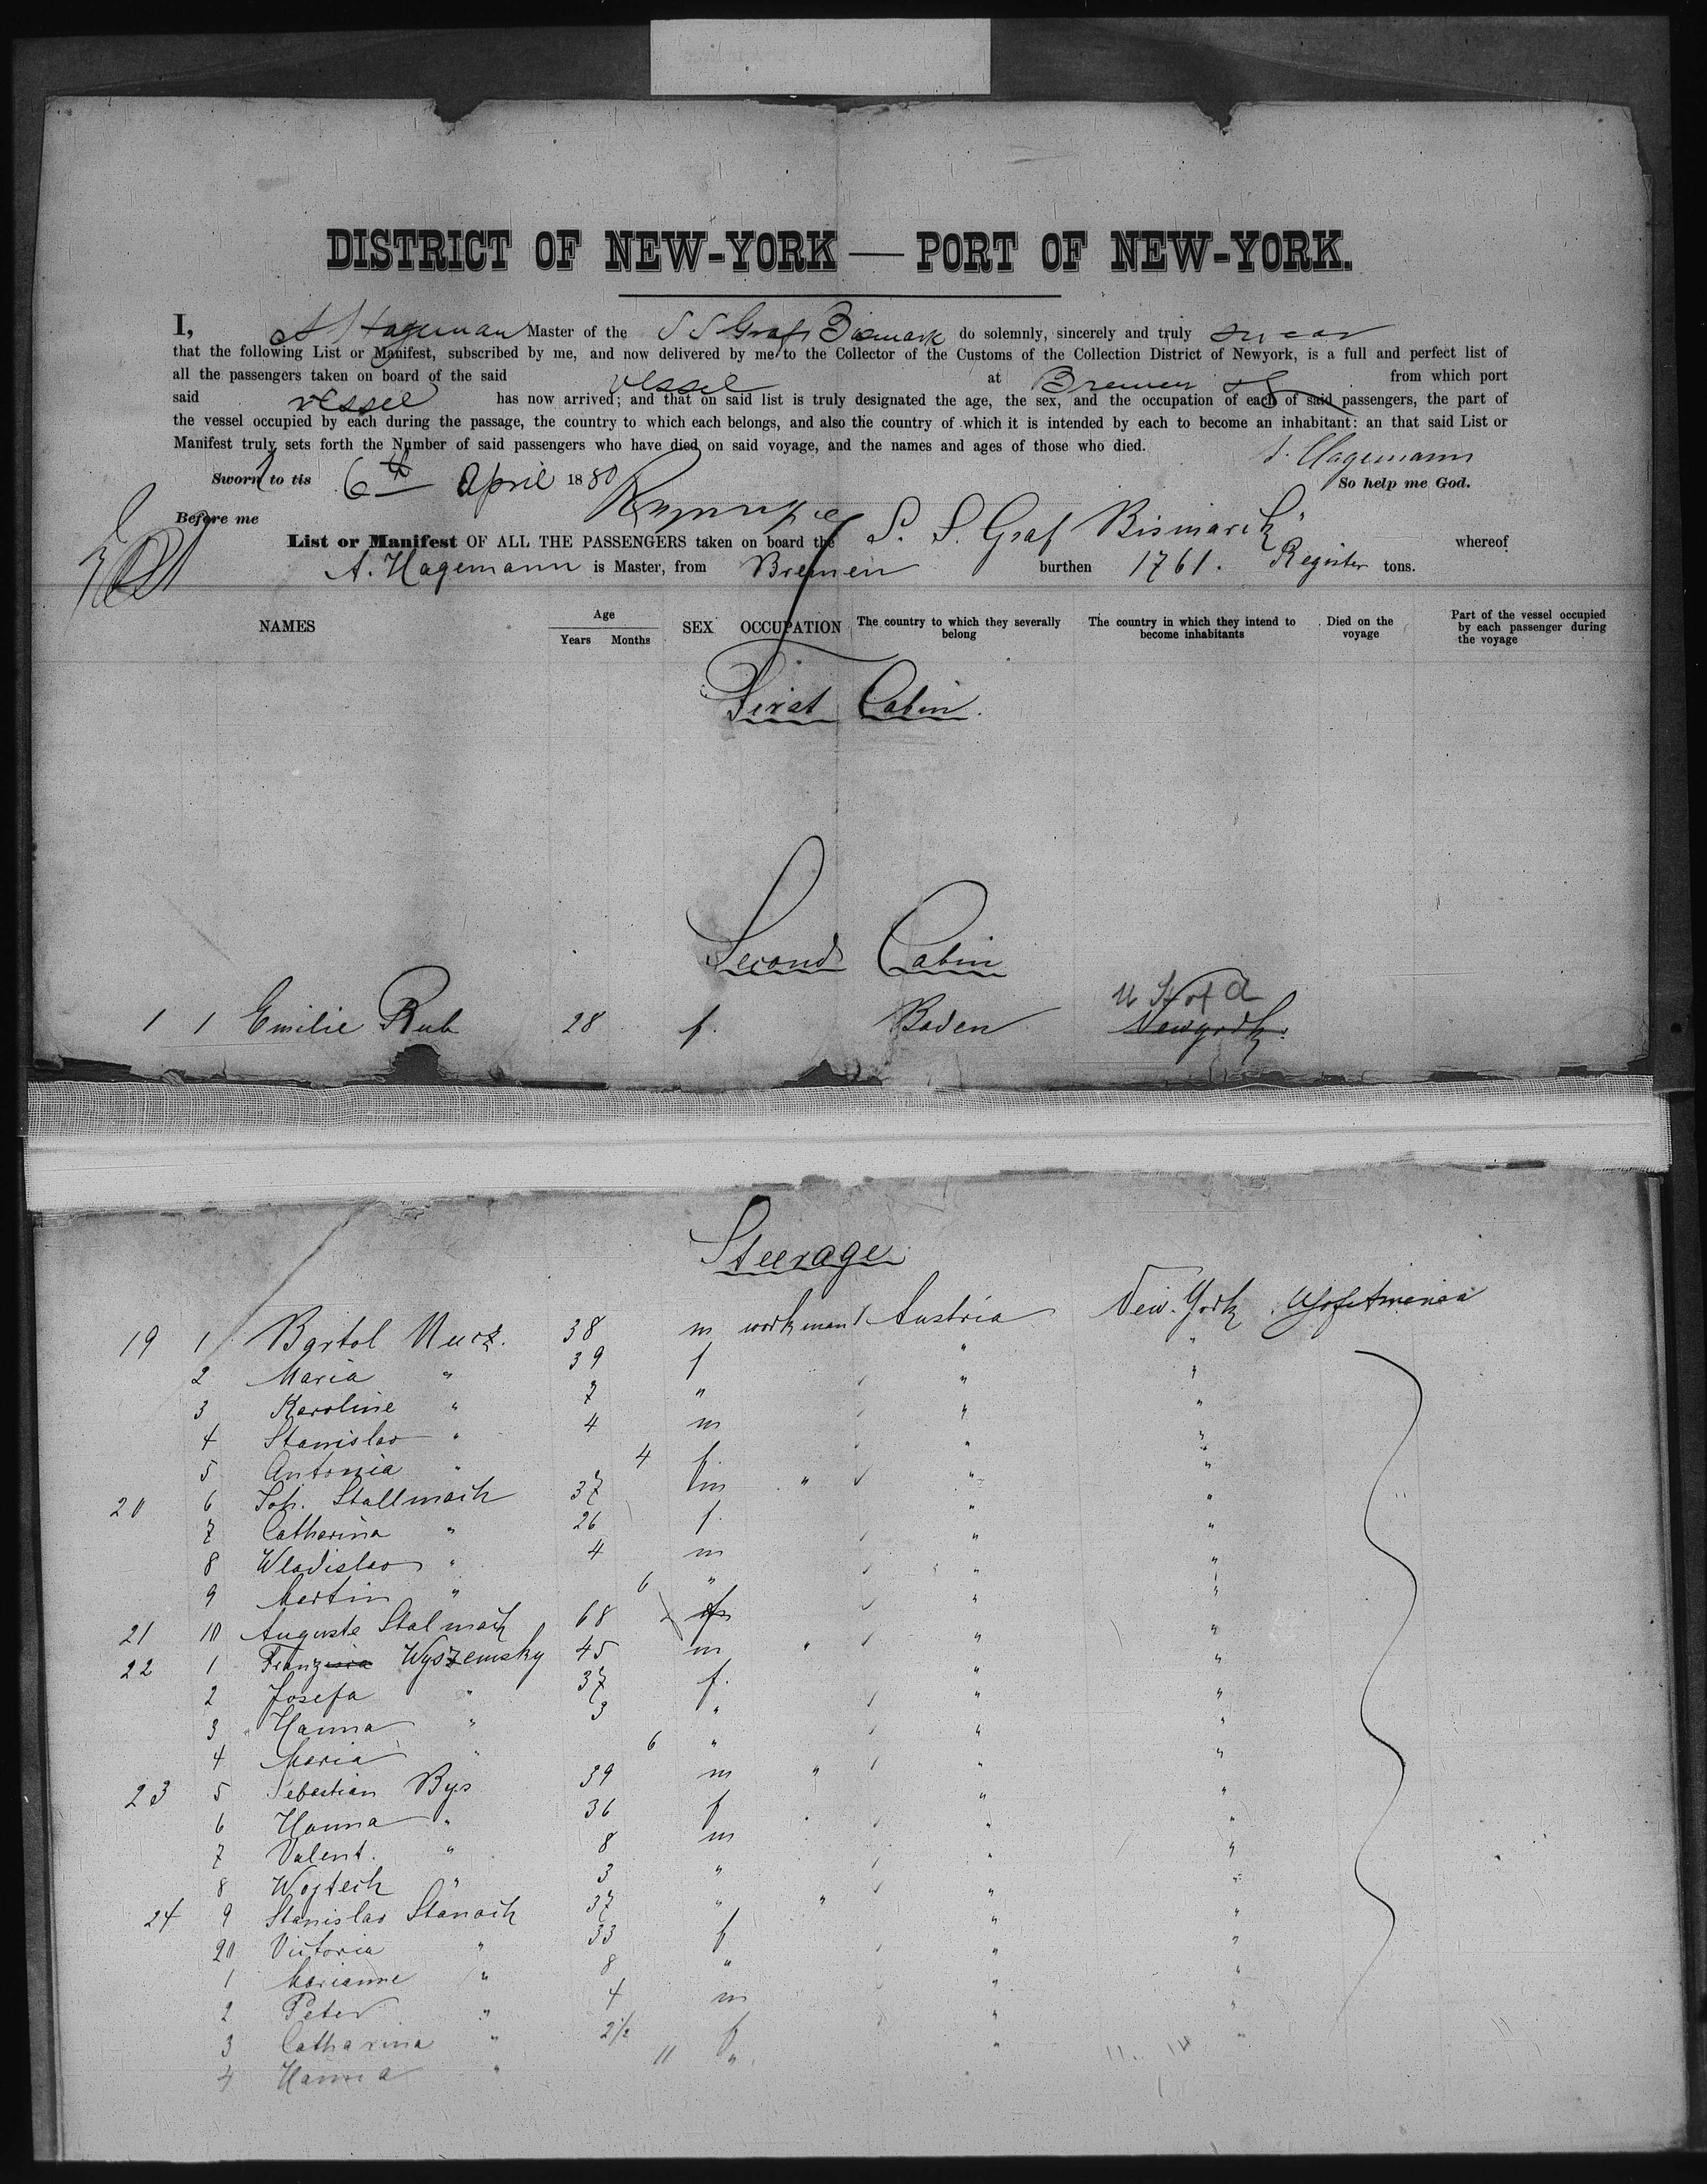 DISTRICT OF NEW-YORK — PORT OF NEW-YORK.
I, A Hageman Master of the S S Graf Bismark do solemnly, sincerely and truly swear
that the following List or Manifest, subscribed by me, and now delivered by me to the Collector of the Customs of the Collection District of Newyork, is a full and perfect list of
all the passengers taken on board of the said vessel at Bremen from which port
said vessel has now arrived; and that on said list is truly designated the age, the sex, and the occupation of each of said passengers, the part of
the vessel occupied by each during the passage, the country to which each belongs, and also the country of which it is intended by each to become an inhabitant: an that said List or
Manifest truly sets forth the Number of said passengers who have died on said voyage, and the names and ages of those who died.
A. Hagemann
Sworn to tis 6th April 1880 So help me God.
Before me
List or Manifest OF ALL THE PASSENGERS taken on board the S. S. Graf Bismarck" whereof
A. Hagemann is Master, from Bremen burthen 1761. Register tons.
NAMES Age Years Months SEX OCCUPATION The country to which they severally belong The country in which they intend to become inhabitants Died on the voyage Part of the vessel occupied by each passenger during the voyage
First Cabin.
Second Cabin
U St of A
1 1 Emilie Rub 28 f. Baden Newyork.
Steerage
19 1 Bartol Nucz. 38 m workman Austria New-York U S of America
2 Maria " 39 f " "
3 Karoline " 7 " " "
4 Stanislav " 4 m " "
5 Antonia " 4 f. " "
20 6 Joh. Stallmach 37 m " " "
7 Catharina " 26 f. " "
8 Wladislav " 4 m " "
9 Martin " 6 " " "
21 10 Auguste Stalmach 68 " "
22 1 Franzisca Wyszemsky 45 m " " "
2 Josefa " 37 f. " "
3 Hanna " 3 " " "
4 Maria " 6 " " "
23 5 Sebastian Bys 39 m " " "
6 Hanna " 36 f " "
7 Valent. " 8 m " "
8 Wojtech " 3 " " "
24 9 Stanislav Stanach 37 " " " "
20 Victoria " 33 f " "
1 Marianne " 8 " " "
2 Peter " 4 m " "
3 Catharina " 2½ f " "
4 Hanna " 11 " " "